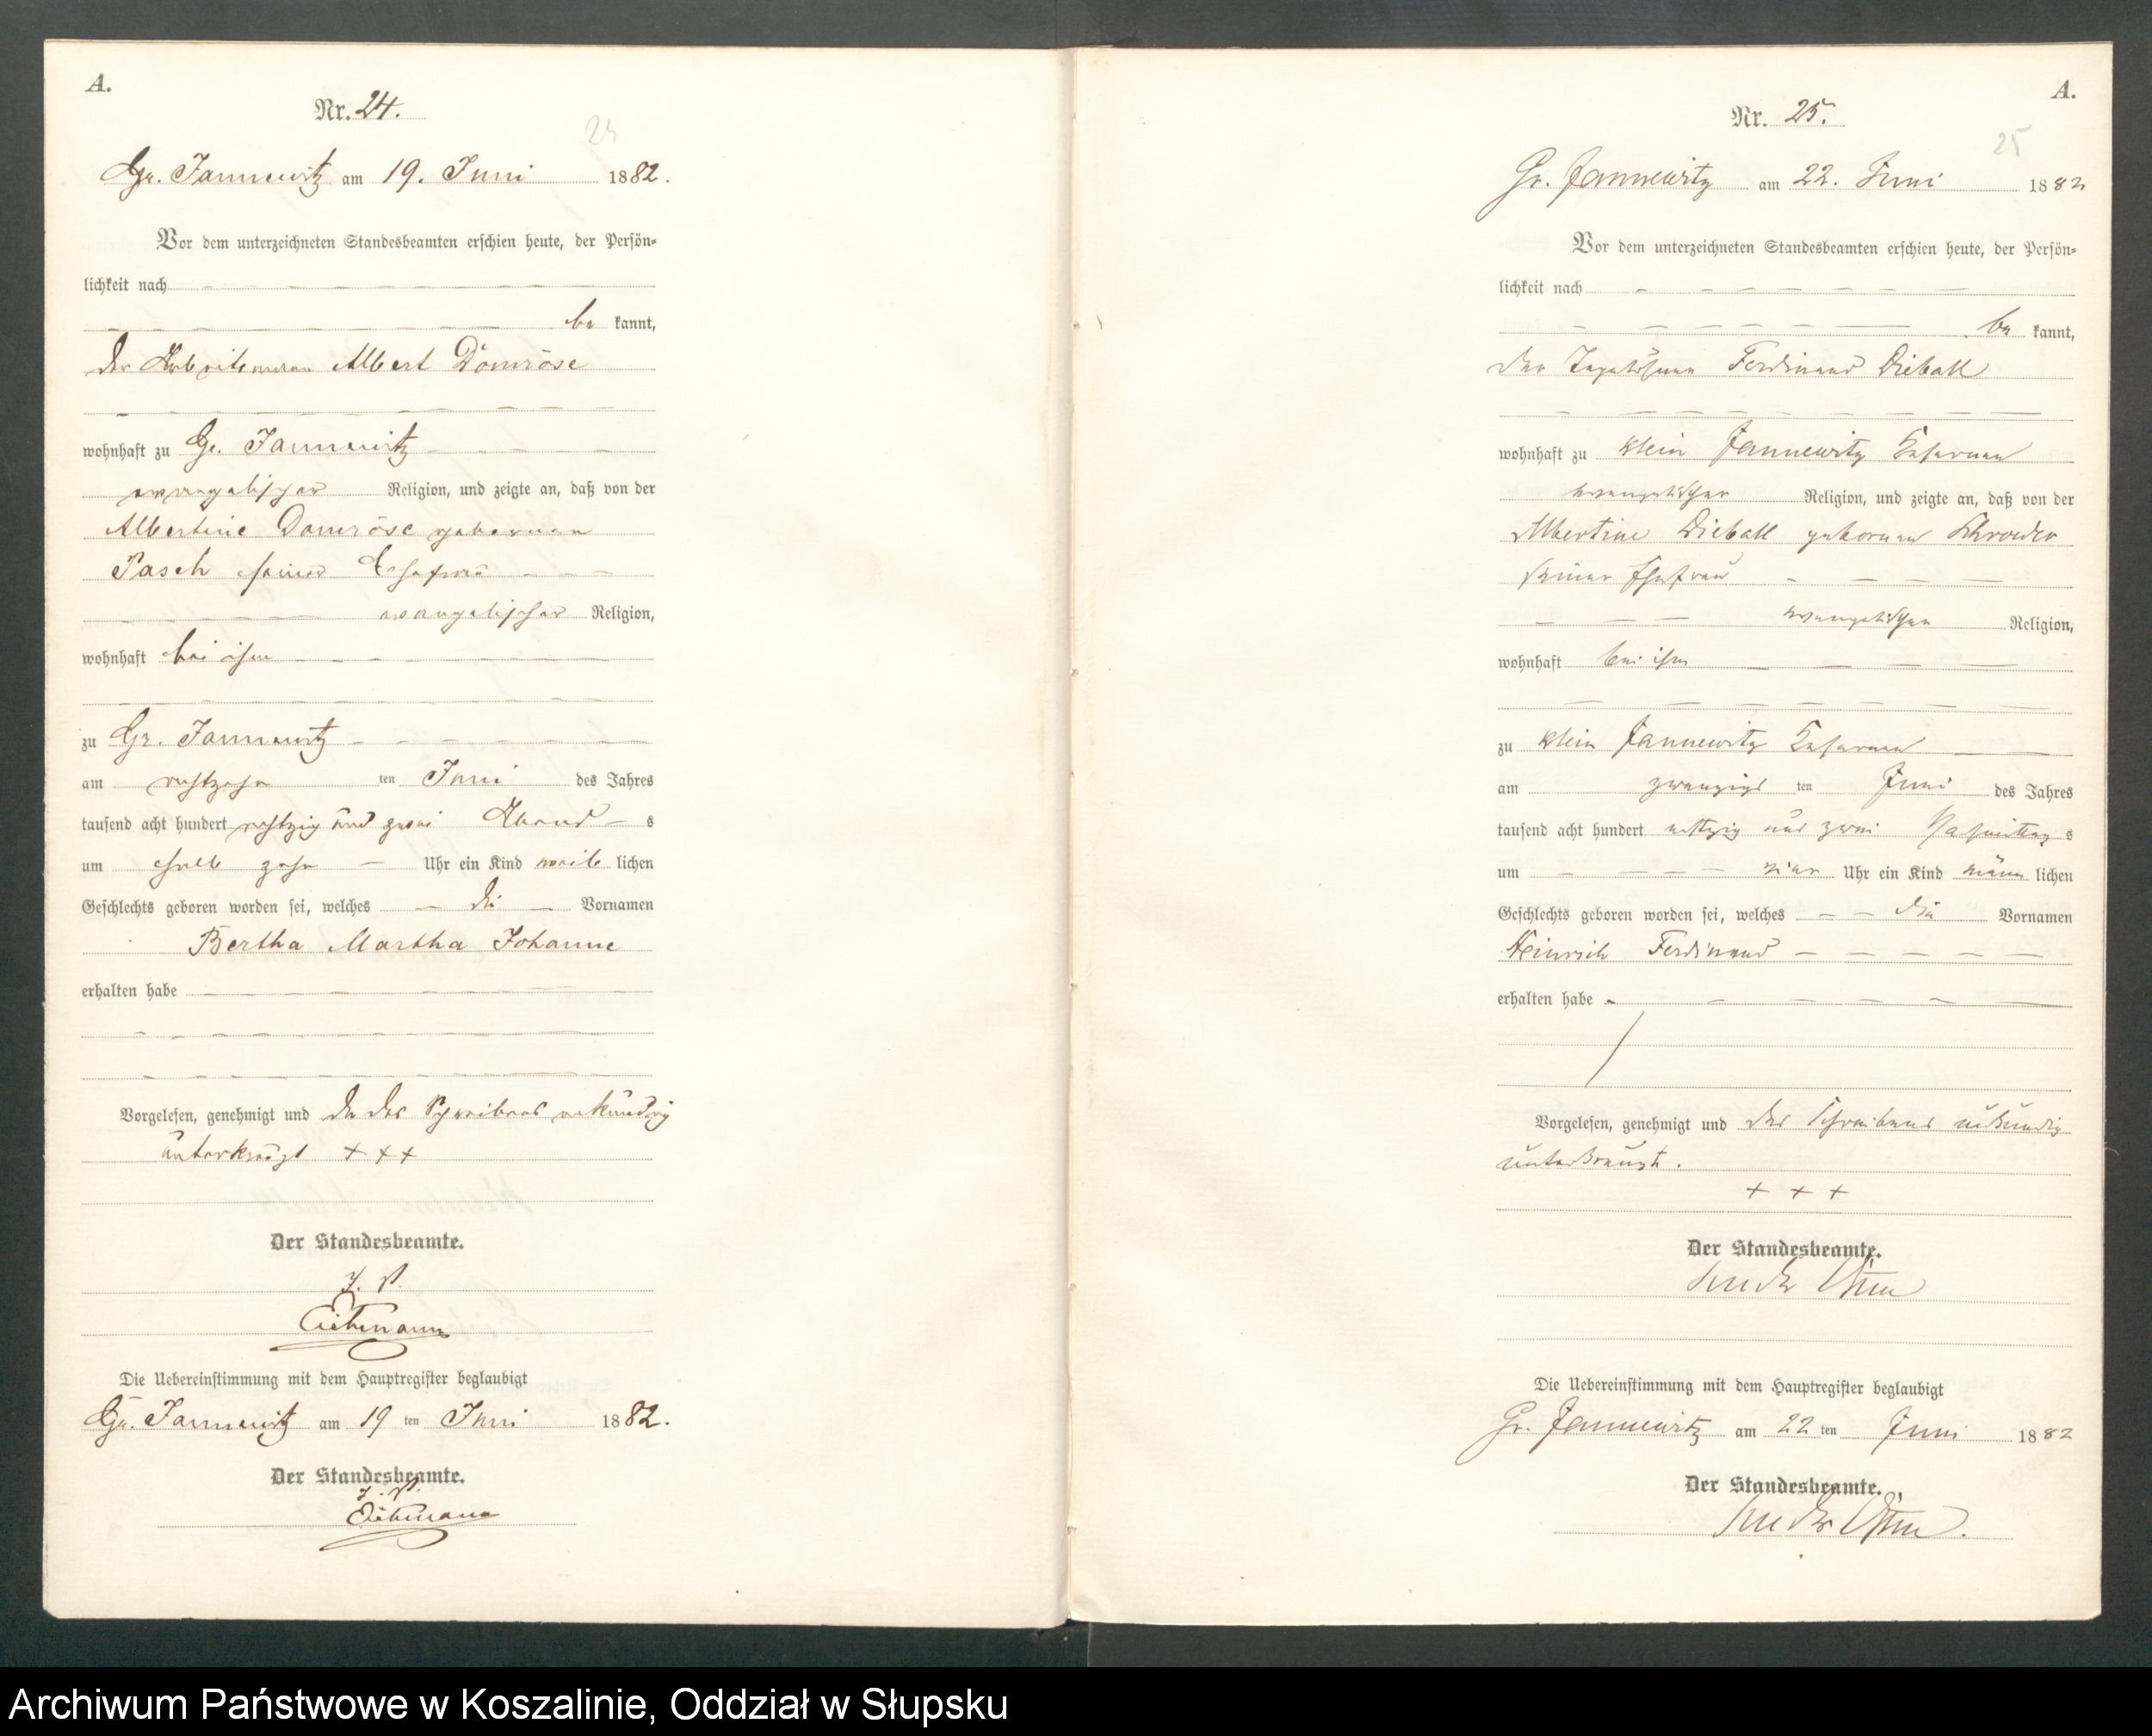 A.
Nr. 24.
24
Gr. Jannewitz am 19. Juni 1882.
Vor dem unterzeichneten Standesbeamten erschien heute, der Persön-
lichkeit nach
be kannt,
der Arbeitsmann Albert Domröse
wohnhaft zu Gr. Jannewitz
evangelischer Religion, und zeigte an, daß von der
Albertine Domröse geborenen
Pasch seiner Ehefrau
evangelischer Religion,
wohnhaft bei ihm
zu Gr. Jannewitz
am achtzehn ten Juni des Jahres
tausend acht hundert achtzig und zwei Abend s
um halb zehn Uhr ein Kind weib lichen
Geschlechts geboren worden sei, welches die Vornamen
Bertha Martha Johanne
erhalten habe
Vorgelesen, genehmigt und da des Schreibens unkundig
unterkreuzt +++
Der Standesbeamte.
J. V.
Die Uebereinstimmung mit dem Hauptregister beglaubigt
Gr. Jannewitz am 19 ten Juni 1882.
Der Standesbeamte.
J. V.
A.
Nr. 25.
25
Gr. Jannewitz am 22. Juni 1882
Vor dem unterzeichneten Standesbeamten erschien heute, der Persön-
lichkeit nach
be kannt,
der Tagelöhner Ferdinand Dieball
wohnhaft zu Klein Jannewitz
evangelischer Religion, und zeigte an, daß von der
Albertine Dieball geborenen Schroeder
seiner Ehefrau
evangelischer Religion,
wohnhaft bei ihm
zu Klein Jannewitz
am zwanzigs ten Juni des Jahres
tausend acht hundert achtzig und zwei Nachmittag s
um vier Uhr ein Kind männ lichen
Geschlechts geboren worden sei, welches die Vornamen
Heinrich Ferdinand
erhalten habe
Vorgelesen, genehmigt und des Schreibens unkundig
unterkreuzt.
+ + +
Der Standesbeamte.
Die Uebereinstimmung mit dem Hauptregister beglaubigt
Gr. Jannewitz am 22 ten Juni 1882
Der Standesbeamte.
Archiwum Państwowe w Koszalinie, Oddział w Słupsku